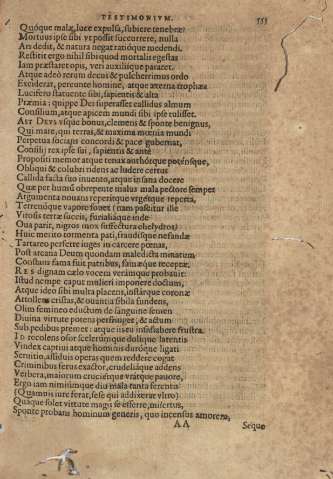 TESTIMONIVM.
553
Quóque malæ, luce expulsa, subiere tenebræ?
Mortuus ipse sibi vt possit succurrere, nulla
Ars dedit, & natura negat ratióque medendi.
Restitit ergo nihil sibi quod mortalis egestas
Iam præstaret opis, veri auxiliique pararet,
Atque adeò rerum decus & pulcherrimus ordo
Exciderat, pereunte homine, atque æterna trophæa
Lucifero statuente sibi, sapientis & alta
Præmia: quippe Dei superasset callidus almum
Consilium, atque apicem mundi sibi ipse tulisset.
AST DEVS vsque bonus, clemens & sponte benignus,
Qui mare, qui terras, & maxima mœnia mundi
Perpetua socialis concordi & pace gubernat,
Consilij rex ipse sui, sapientis & antè
Propositi memor atque tenax authórque poténsque,
Obliqui & colubri ridens ac ludere certus
Callida facta suo inuento, atque in sana docere
Quæ per humū obrepente malus mala pectore semper
Argumenta nouaret reperitque vrgétque reperta,
Terrenóque vapore fouet (nam pascitur ille
Virosis terræ succis, furialiáque inde
Oua parit, nigros mox suffectura chelydros)
Huic merito tormenta pati, fraudísque nefandæ
Tartareo perferre iuges in carcere pœnas,
Post arcana Deum quondam maledicta minatum
Constans fama fuit patribus, fámæque receptæ,
RES dignam cælo vocem verámque probauit:
Istud nempe caput mulieri imponere doctum,
Atque ideo sibi multa placens, instárque coronæ
Attollens cristas, & ouantia sibila fundens,
Olim femineo eductum de sanguine semen
Diuina virtute potens persringet, & actum
Sub pedibus premet: atque iis eu insidiabere frustra.
ID recolens osor scelerúmque dolique latentis
Vindex captiui atque hominis duróque ligati
Seruitio, assiduis operas quem reddere cogat
Criminibus ferus exactor, crudeliáque addens
Verbera, maiorum cruciatúsque vrátque pauore,
Ergo iam nimiúmque diu mala tanta ferentis
(Quamuis iure ferat, sese qui addixerat vltro)
Quáque solet virtute magis se efferre, misertus,
Sponte probans hominum generis, quo incensus amorem,
AA
Seque